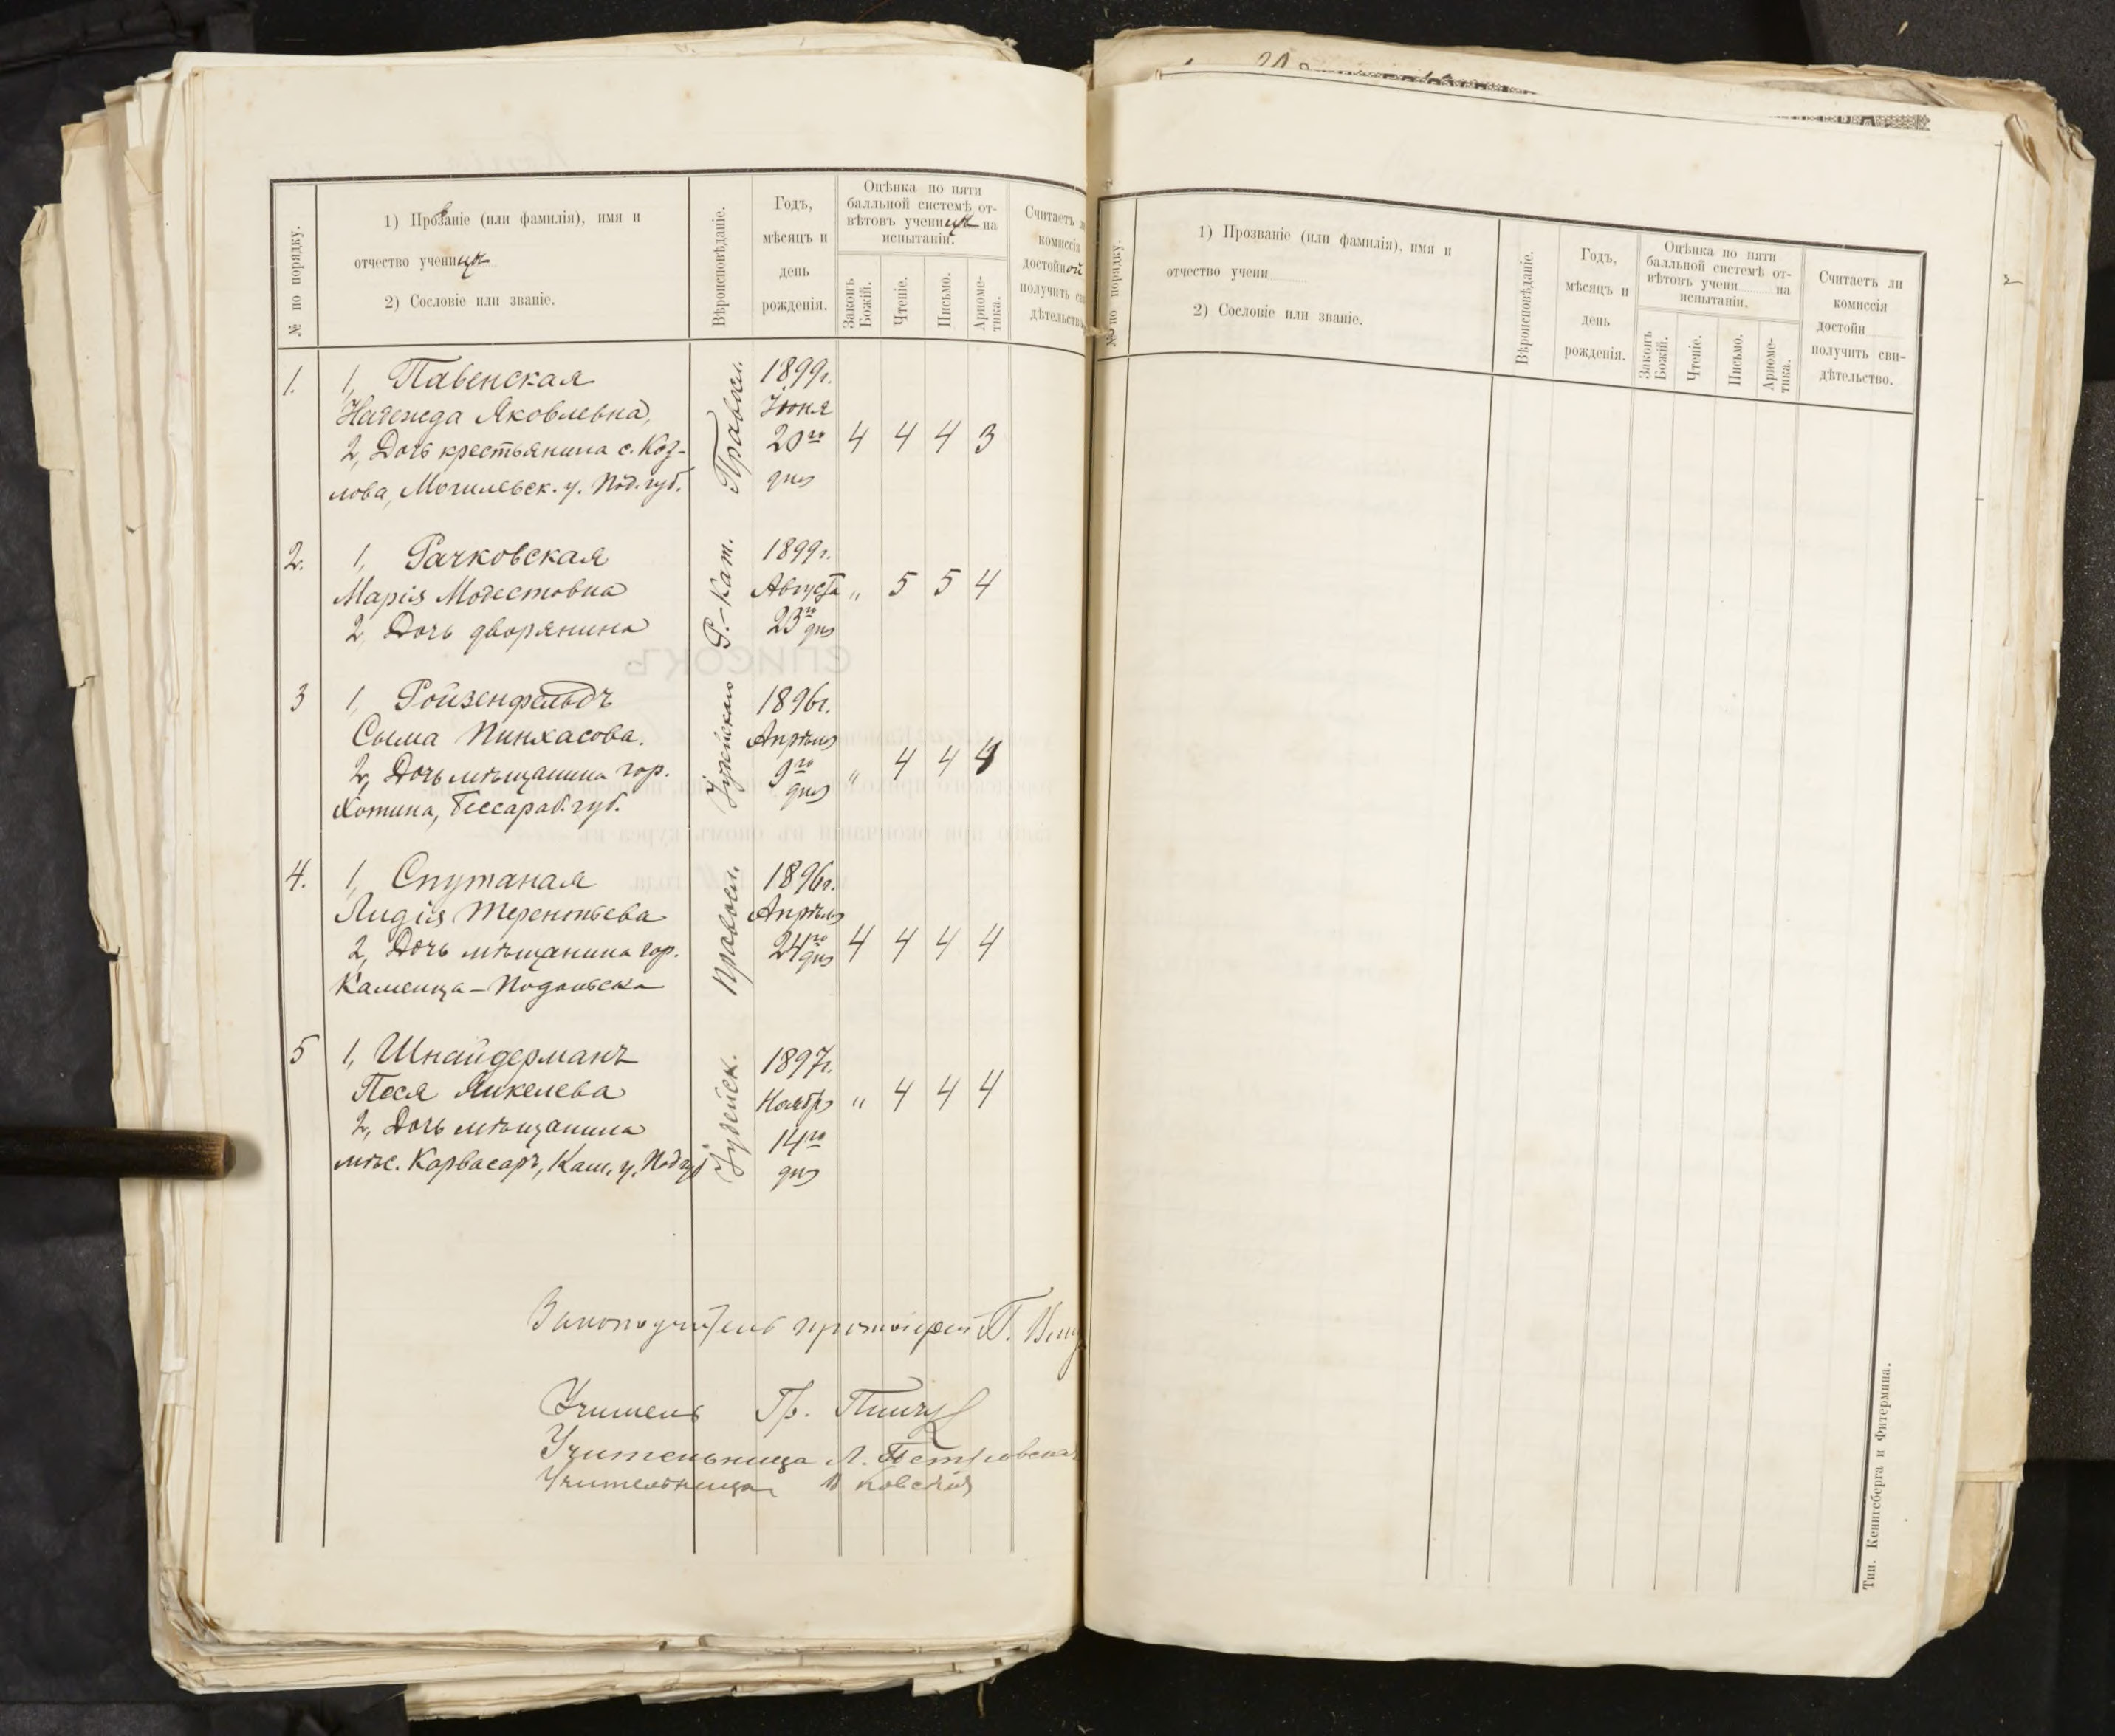 № по порядку.
1) Прозваніе (или фамилія), имя и
отчество ученицъ
2) Сословіе или званіе.
Вѣроисповѣданіе.
Годъ,
мѣсяцъ и
день
рожденія.
Оцѣнка по пяти
балльной системѣ от-
вѣтовъ ученицъ на
испытаніи.
Законъ
Божій.
Чтеніе.
Письмо.
Ариѳме-
тика.
Считаетъ
комиссія
достойной
получить
1. 1, Павенская
Надежда Яковлевна,
2, Дочь крестьянина с. Коз-
лова, Могилевск. у. Под. губ.
Правосл.
1899 г.
Іюня
20го
дня
4 4 4 3
2. 1, Рачковская
Марія Модестовна
2, Дочь дворянина
Р.-Кат.
1899 г.
Августа
23го дня
„ 5 5 4
3 1, Ройзенфельдъ
Сыма Пинхасова.
2, Дочь мѣщанина гор.
Хотина, Бессараб. губ.
Іудейскаго
1896 г.
Апрѣля
9го
дня
„ 4 4 4
4. 1, Спутаная
Лидія Терентьева
2, Дочь мѣщанина гор.
Каменца-Подольска
Правосл.
1896 г.
Апрѣля
24го дня
4 4 4 4
5 1, Шнайдерманъ
Песя Янкелева
2, Дочь мѣщанина
мѣс. Карвасаръ, Кам. у. Под губ
Іудейск.
1897 г.
Ноября
14го
дня
„ 4 4 4
Законоучитель протоіерей П.
Учитель Гр.
Учительница Л.
Учительница
№ по порядку.
1) Прозваніе (или фамилія), имя и
отчество учени
2) Сословіе или званіе.
Вѣроисповѣданіе.
Годъ,
мѣсяцъ и
день
рожденія.
Оцѣнка по пяти
балльной системѣ от-
вѣтовъ учени на
испытаніи.
Законъ
Божій.
Чтеніе.
Письмо.
Ариѳме-
тика.
Считаетъ ли
комиссія
достойн
получить сви-
дѣтельство.
Тип. Кенигсберга и Фитермина.